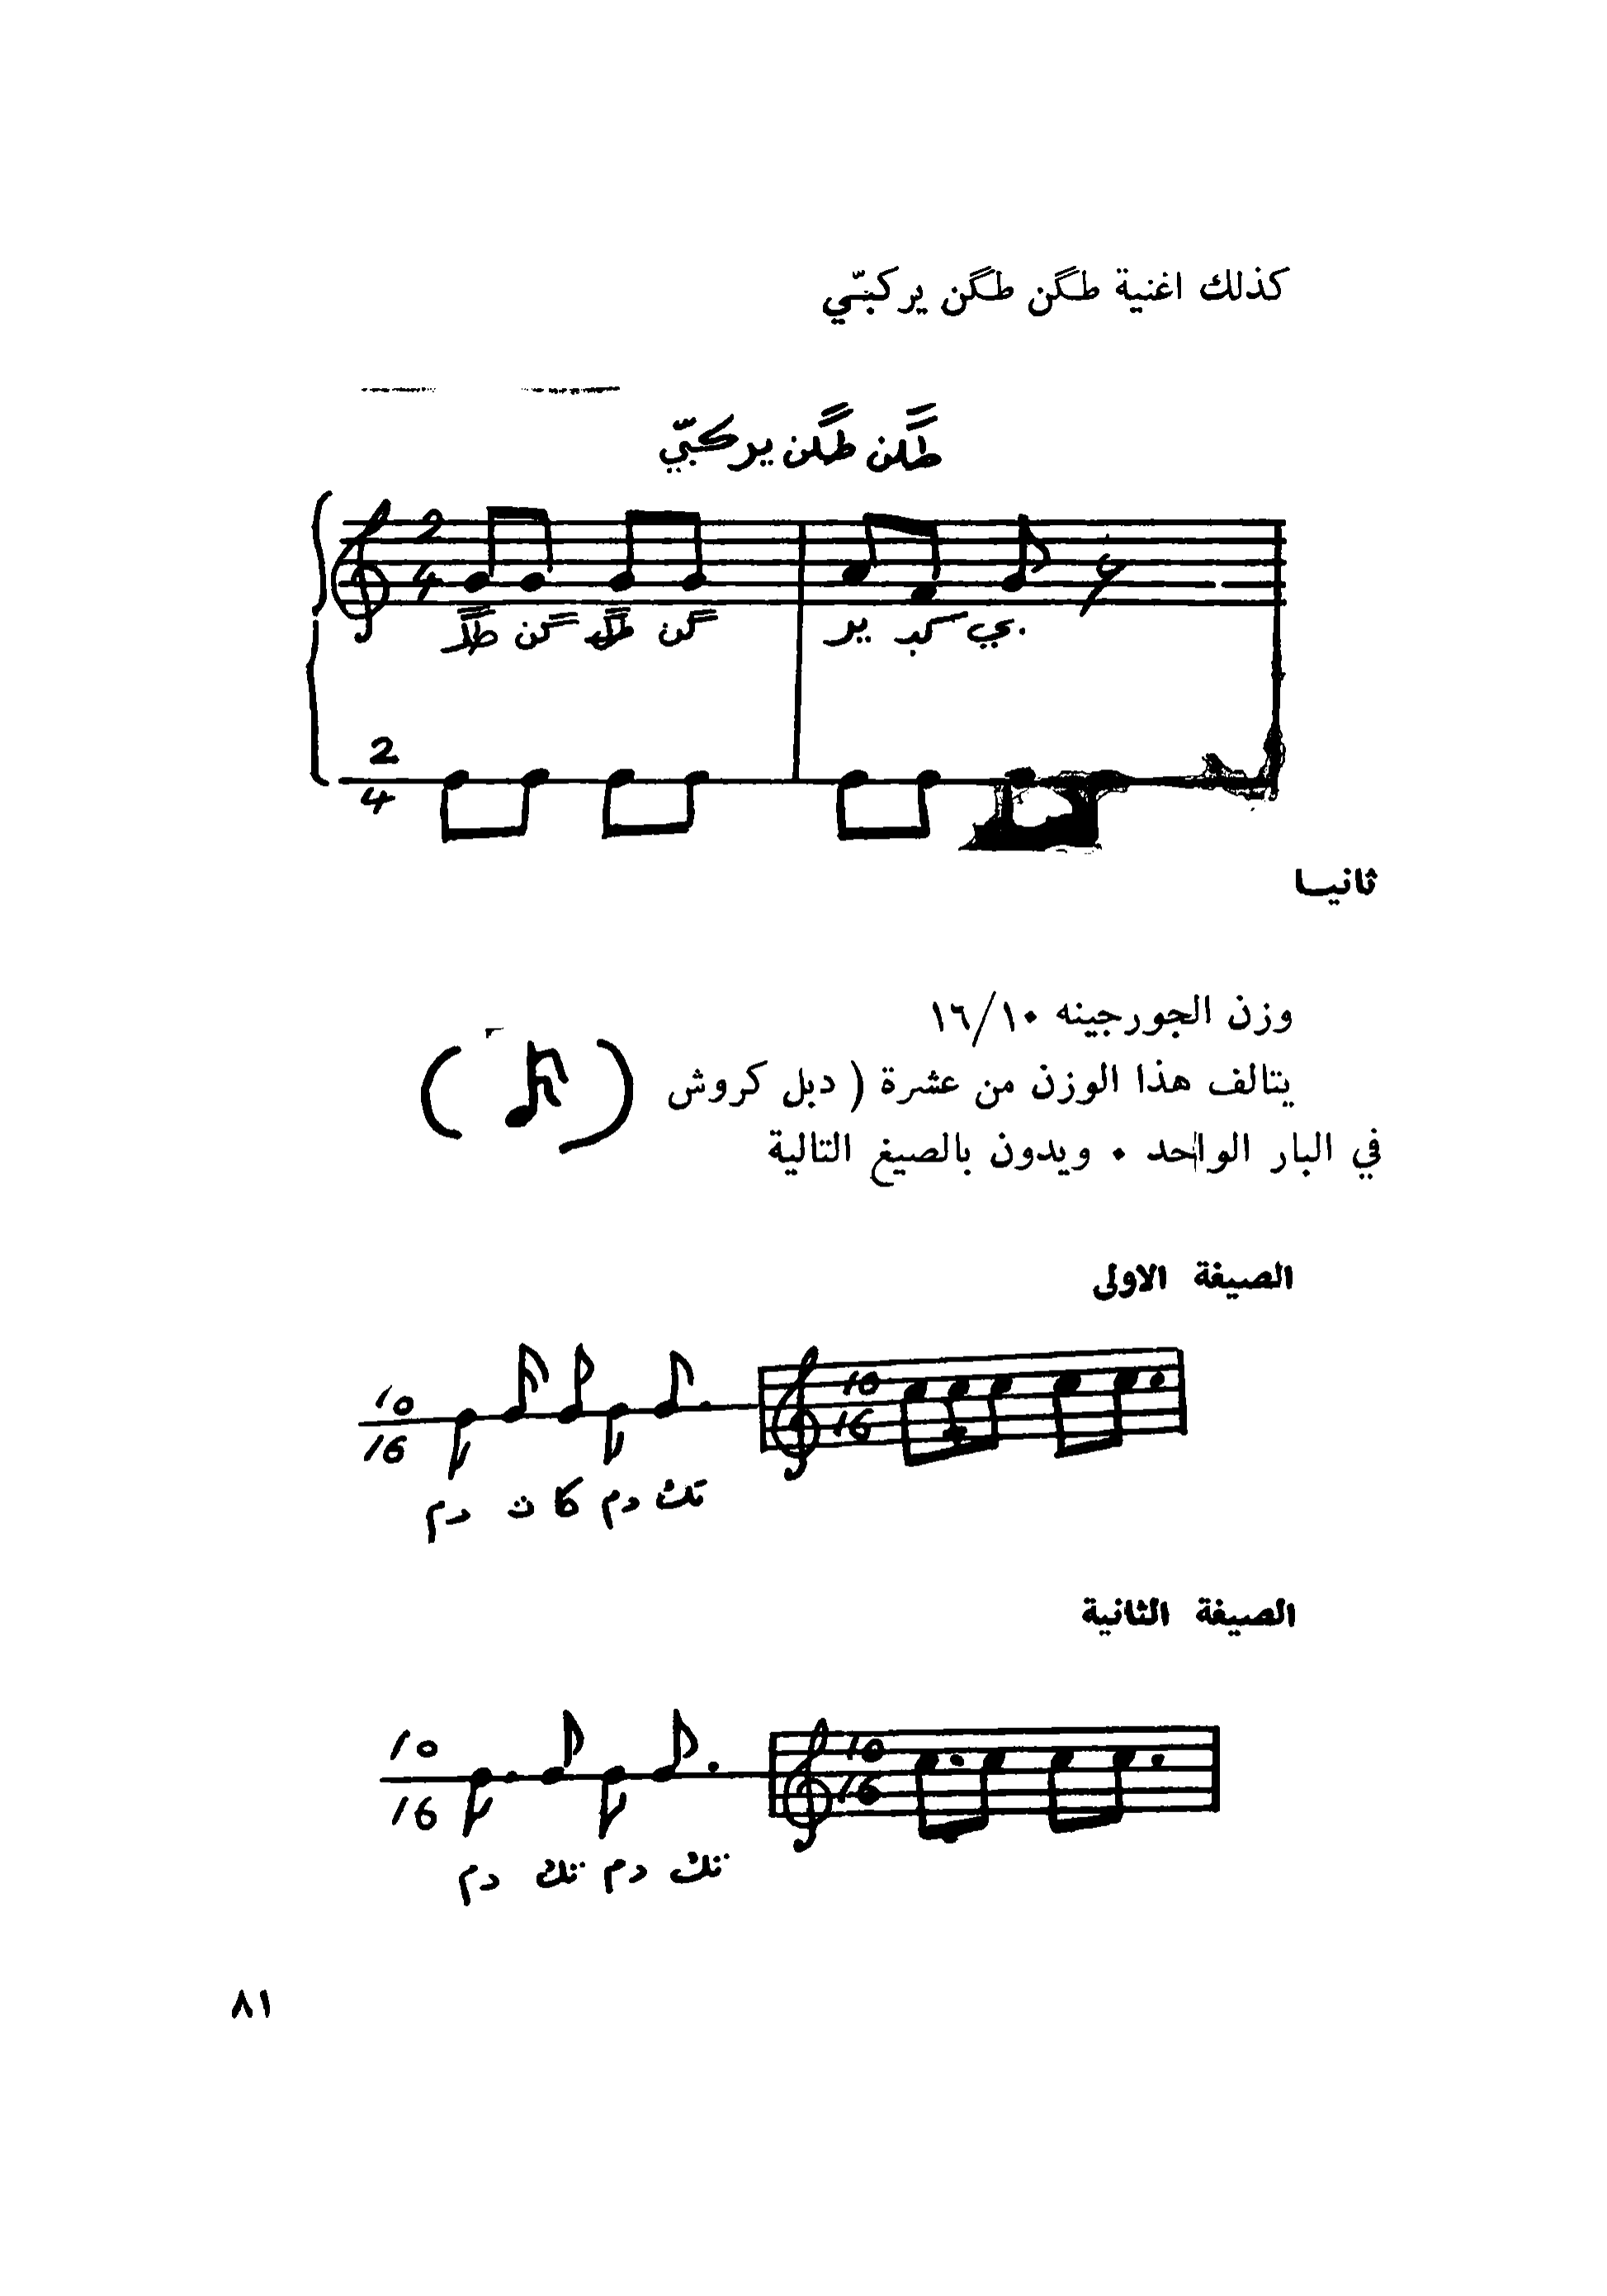 كذلك اغنية طگن طگن يركبّي
طگن طگن يركبّي
2
4
طگـ گن طگـ گن ير كبـ بي.
2
4
ثانيا
وزن الجورجينه ١٦/١٠
يتالف هذا الوزن من عشرة ( دبل كروش )
في البار الواحد . ويدون بالصيغ التالية
الصيغة الاولى
10
16
10
16
دم ت كا دم تك
الصيغة الثانية
10
16
10
16
دم تك دم تك
٨١